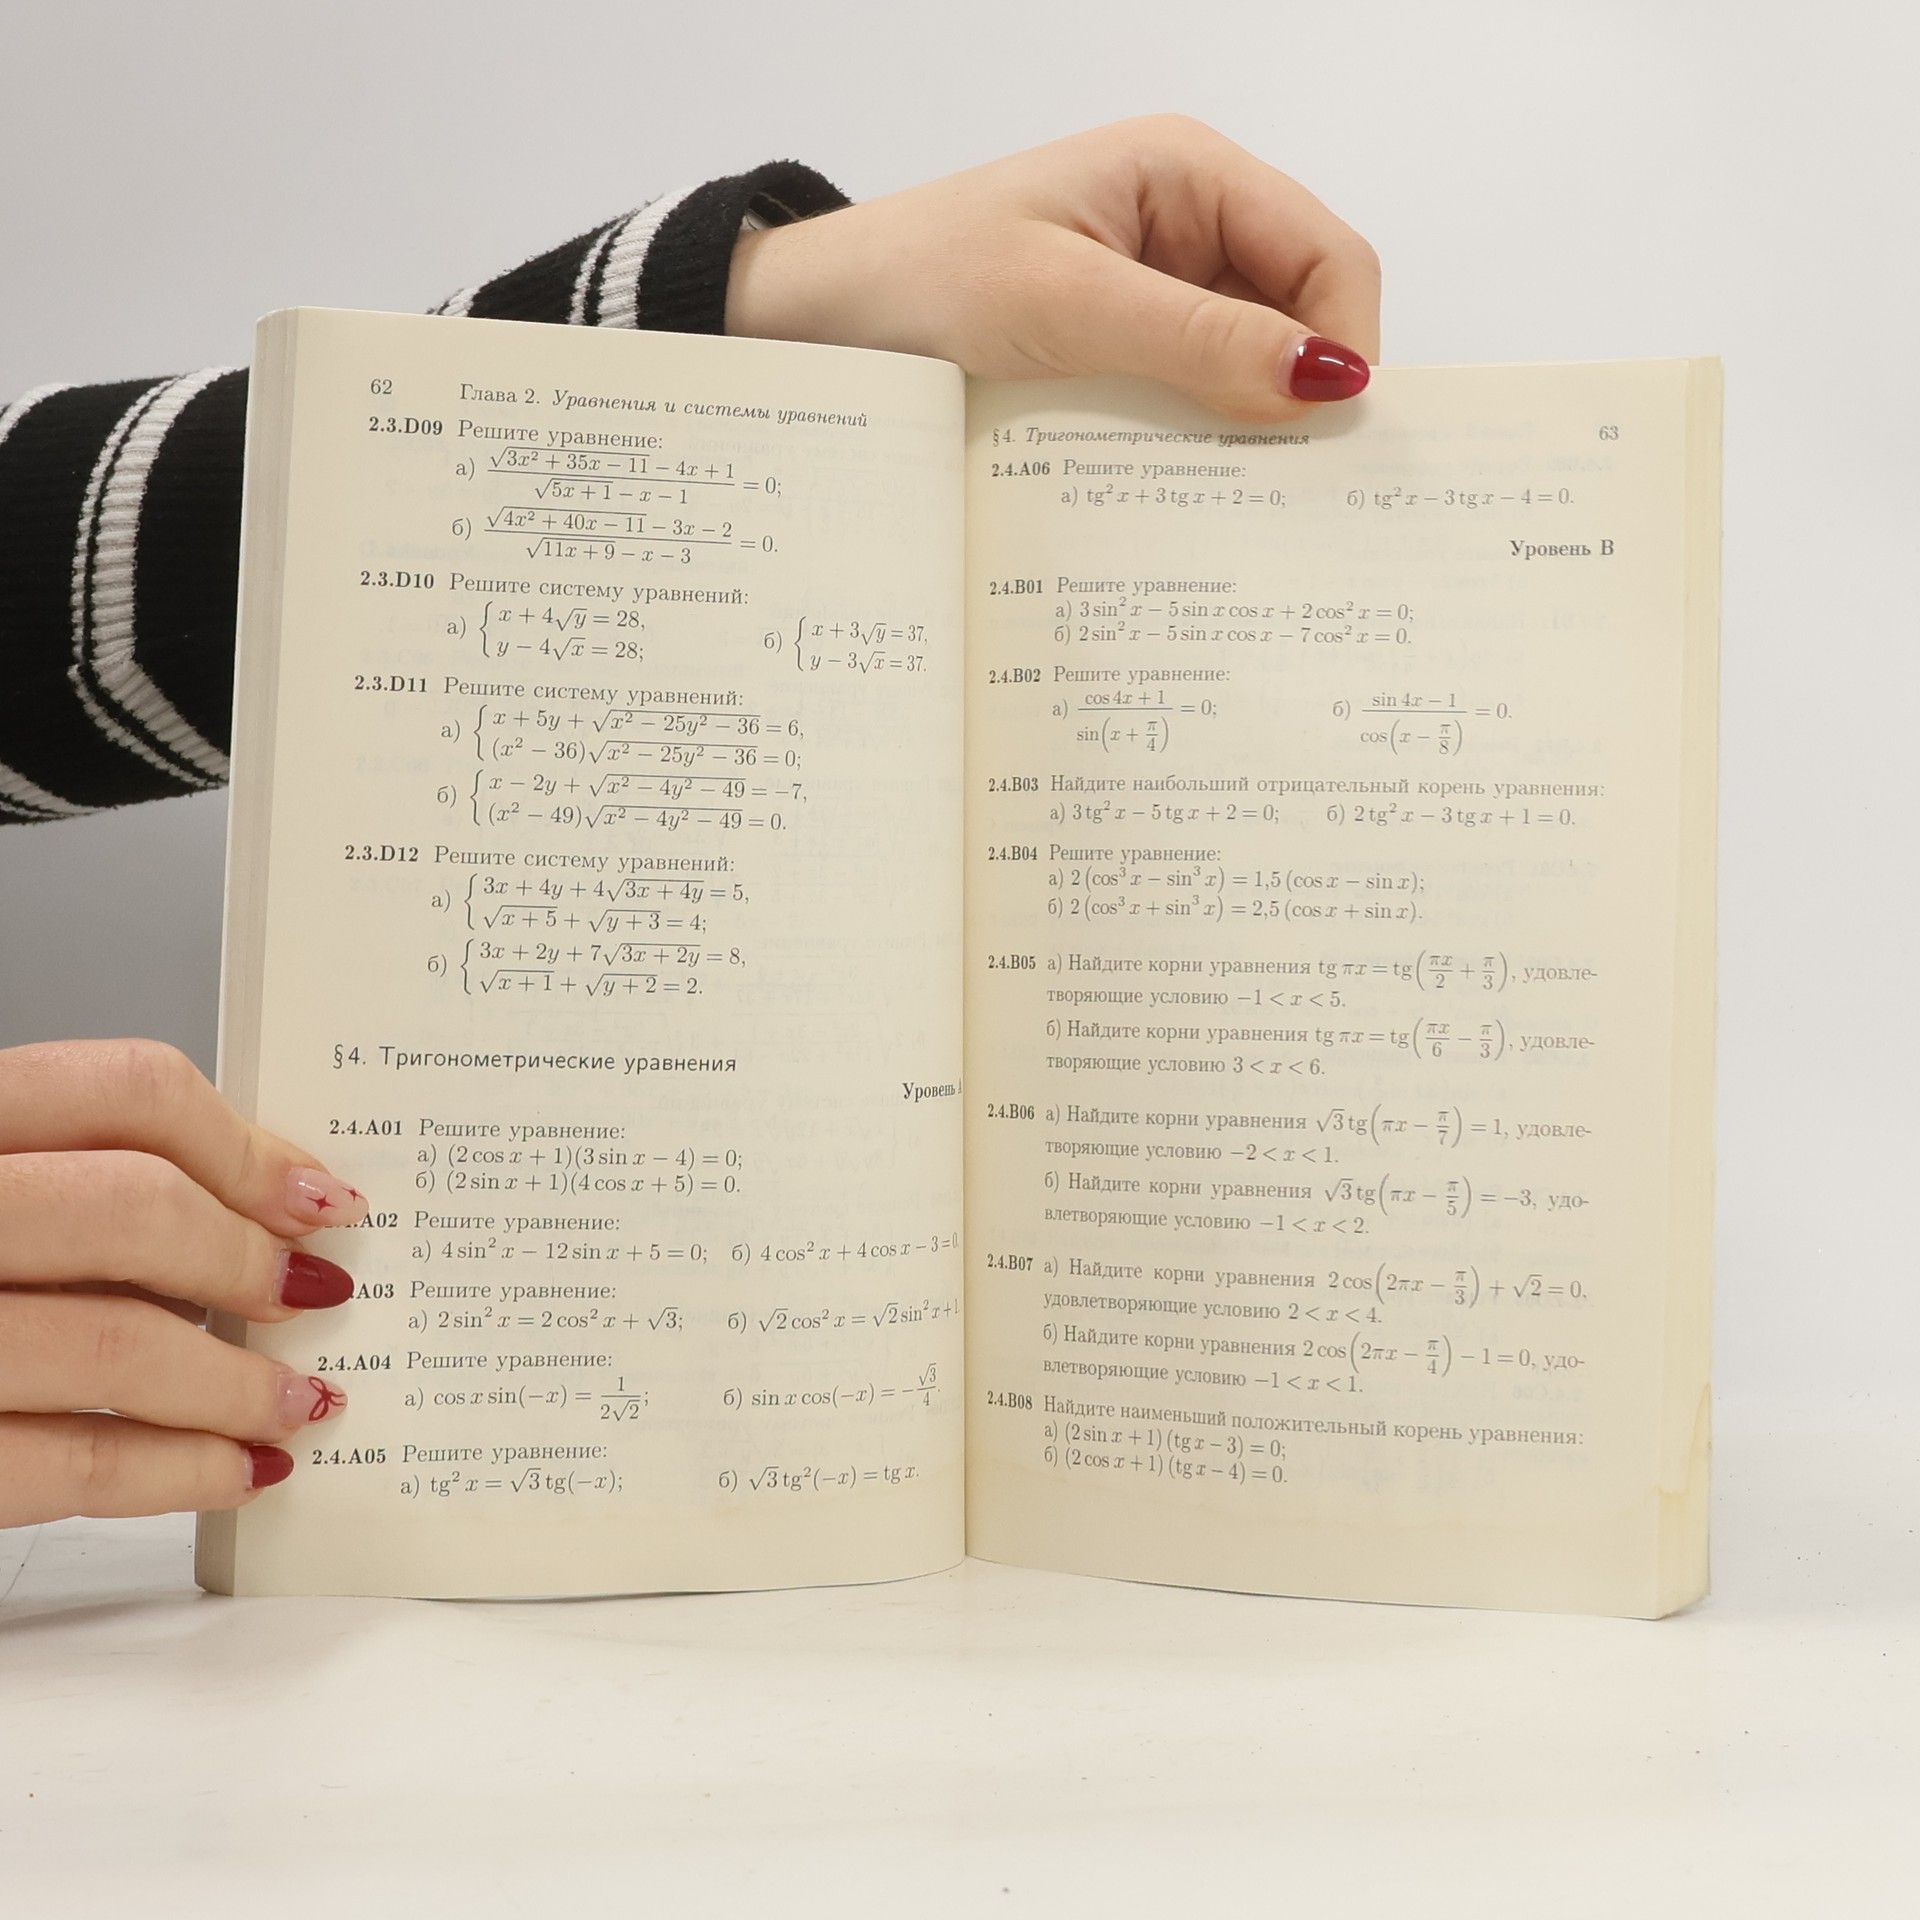 62 Глава 2. Уравнения и системы уравнений
2.3.D09 Решите уравнение:
а) (√(3x² + 35x − 11) − 4x + 1)/(√(5x + 1) − x − 1) = 0;
б) (√(4x² + 40x − 11) − 3x − 2)/(√(11x + 9) − x − 3) = 0.
2.3.D10 Решите систему уравнений:
а) { x + 4√y = 28, б) { x + 3√y = 37,
y − 4√x = 28; y − 3√x = 37.
2.3.D11 Решите систему уравнений:
а) { x + 5y + √(x² − 25y² − 36) = 6,
(x² − 36)√(x² − 25y² − 36) = 0;
б) { x − 2y + √(x² − 4y² − 49) = −7,
(x² − 49)√(x² − 4y² − 49) = 0.
2.3.D12 Решите систему уравнений:
а) { 3x + 4y + 4√(3x + 4y) = 5,
√(x + 5) + √(y + 3) = 4;
б) { 3x + 2y + 7√(3x + 2y) = 8,
√(x + 1) + √(y + 2) = 2.
§4. Тригонометрические уравнения
Уровень
2.4.A01 Решите уравнение:
а) (2 cos x + 1)(3 sin x − 4) = 0;
б) (2 sin x + 1)(4 cos x + 5) = 0.
A02 Решите уравнение:
а) 4 sin² x − 12 sin x + 5 = 0; б) 4 cos² x + 4 cos x − 3 = 0
A03 Решите уравнение:
а) 2 sin² x = 2 cos² x + √3; б) √2 cos² x = √2 sin² x + 1
2.4.A04 Решите уравнение:
а) cos x sin(−x) = 1/(2√2); б) sin x cos(−x) = −√3/4.
2.4.A05 Решите уравнение:
а) tg² x = √3 tg(−x); б) √3 tg²(−x) = tg x.
§4. Тригонометрические уравнения 63
2.4.A06 Решите уравнение:
а) tg² x + 3 tg x + 2 = 0; б) tg² x − 3 tg x − 4 = 0.
Уровень B
2.4.B01 Решите уравнение:
а) 3 sin² x − 5 sin x cos x + 2 cos² x = 0;
б) 2 sin² x − 5 sin x cos x − 7 cos² x = 0.
2.4.B02 Решите уравнение:
а) (cos 4x + 1)/sin(x + π/4) = 0; б) (sin 4x − 1)/cos(x − π/8) = 0.
2.4.B03 Найдите наибольший отрицательный корень уравнения:
а) 3 tg² x − 5 tg x + 2 = 0; б) 2 tg² x − 3 tg x + 1 = 0.
2.4.B04 Решите уравнение:
а) 2 (cos³ x − sin³ x) = 1,5 (cos x − sin x);
б) 2 (cos³ x + sin³ x) = 2,5 (cos x + sin x).
2.4.B05 а) Найдите корни уравнения tg πx = tg(πx/2 + π/3), удовле-
творяющие условию −1 < x < 5.
б) Найдите корни уравнения tg πx = tg(πx/6 − π/3), удовле-
творяющие условию 3 < x < 6.
2.4.B06 а) Найдите корни уравнения √3 tg(πx − π/7) = 1, удовле-
творяющие условию −2 < x < 1.
б) Найдите корни уравнения √3 tg(πx − π/5) = −3, удо-
влетворяющие условию −1 < x < 2.
2.4.B07 а) Найдите корни уравнения 2 cos(2πx − π/3) + √2 = 0,
удовлетворяющие условию 2 < x < 4.
б) Найдите корни уравнения 2 cos(2πx − π/4) − 1 = 0, удо-
влетворяющие условию −1 < x < 1.
2.4.B08 Найдите наименьший положительный корень уравнения:
а) (2 sin x + 1) (tg x − 3) = 0;
б) (2 cos x + 1) (tg x − 4) = 0.